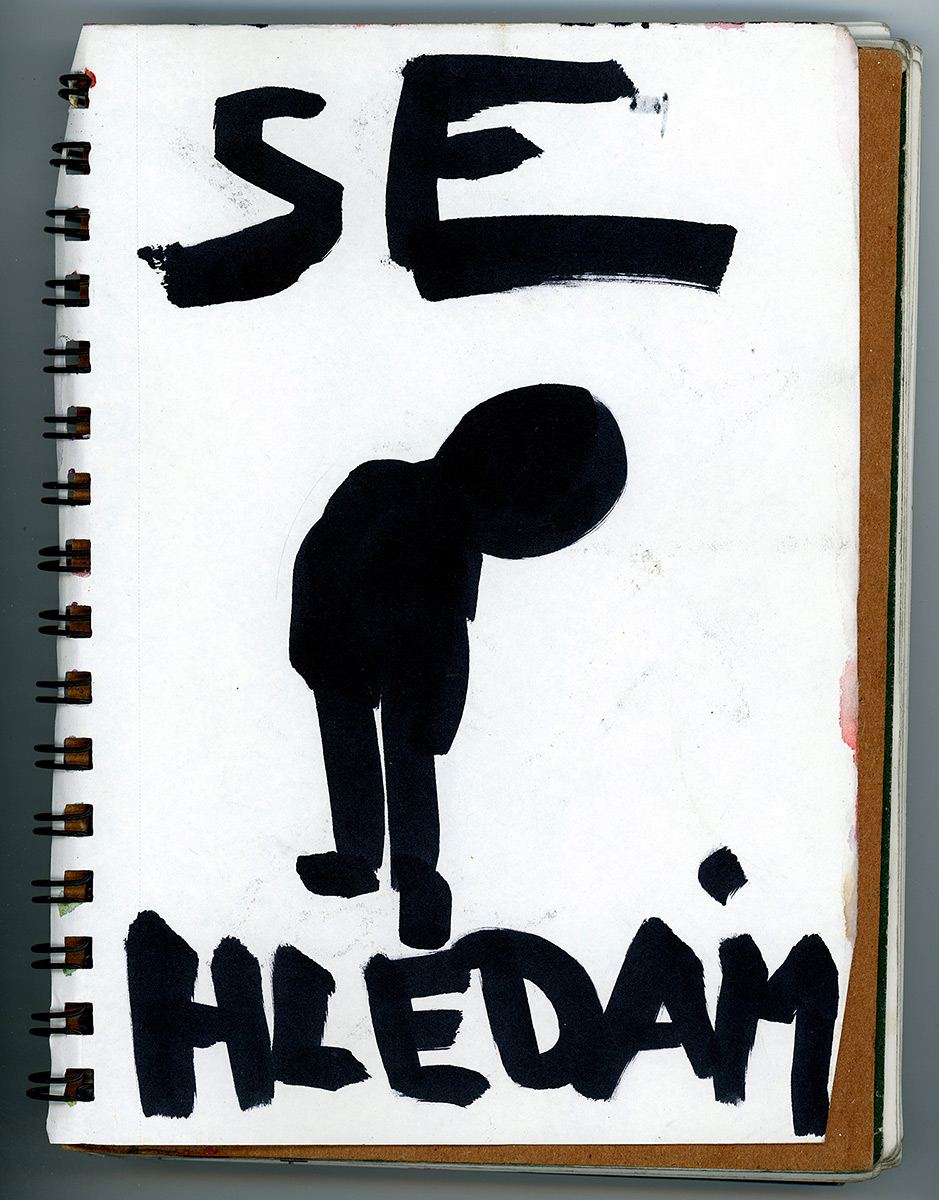 SE
HLEDÁM